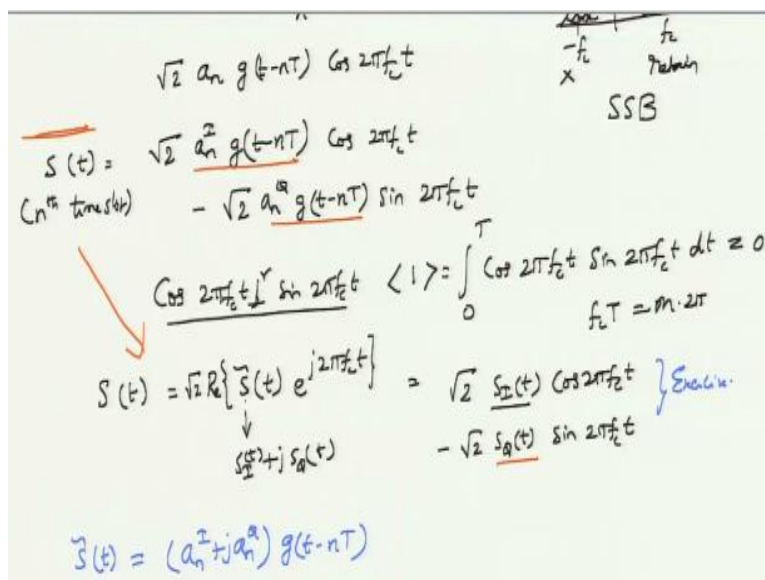 √2 aₙ g(t-nT) Cos 2πf_c t
-f_c f_c
x Retain
SSB
S(t) = √2 aₙᴵ g(t-nT) Cos 2πf_c t
(nᵗʰ timeslot) - √2 aₙ^Q g(t-nT) Sin 2πf_c t
Cos 2πf_c t ⊥ʳ Sin 2πf_c t < , > = ∫₀ᵀ Cos 2πf_c t Sin 2πf_c t dt = 0
f_c T = m·2π
S(t) = √2 Re{ s̃(t) e^{j2πf_c t} } = √2 S_I(t) Cos 2πf_c t } Exercise.
↓ - √2 S_Q(t) Sin 2πf_c t
S_I(t) + j S_Q(t)
s̃(t) = (aₙᴵ + j aₙ^Q) g(t-nT)